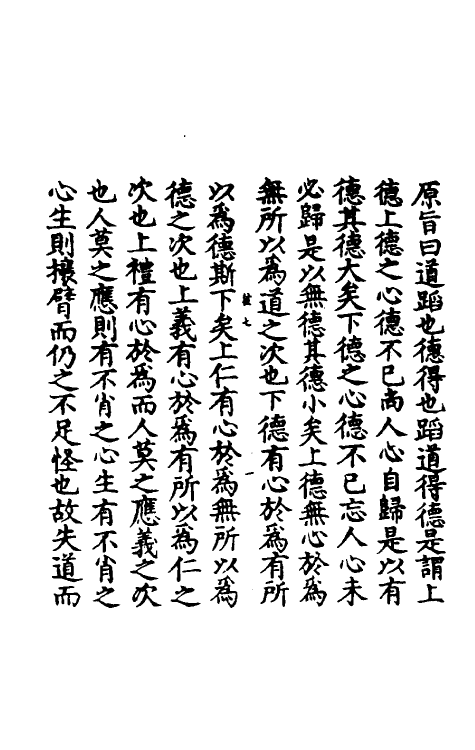 原旨曰道蹈也德得也蹈道得德是謂上
德上德之心德不已尚人心自歸是以有
德其德大矣下德之心德不已忘人心未
必歸是以無德其德小矣上德無心於爲
無所以爲道之次也下德有心於爲有所
七 一
以爲德斯下矣上仁有心於爲無所以爲
德之次也上義有心於爲有所以爲仁之
次也上禮有心於爲而人莫之應義之次
也人莫之應則有不肖之心生有不肖之
心生則攘臂而仍之不足怪也故失道而